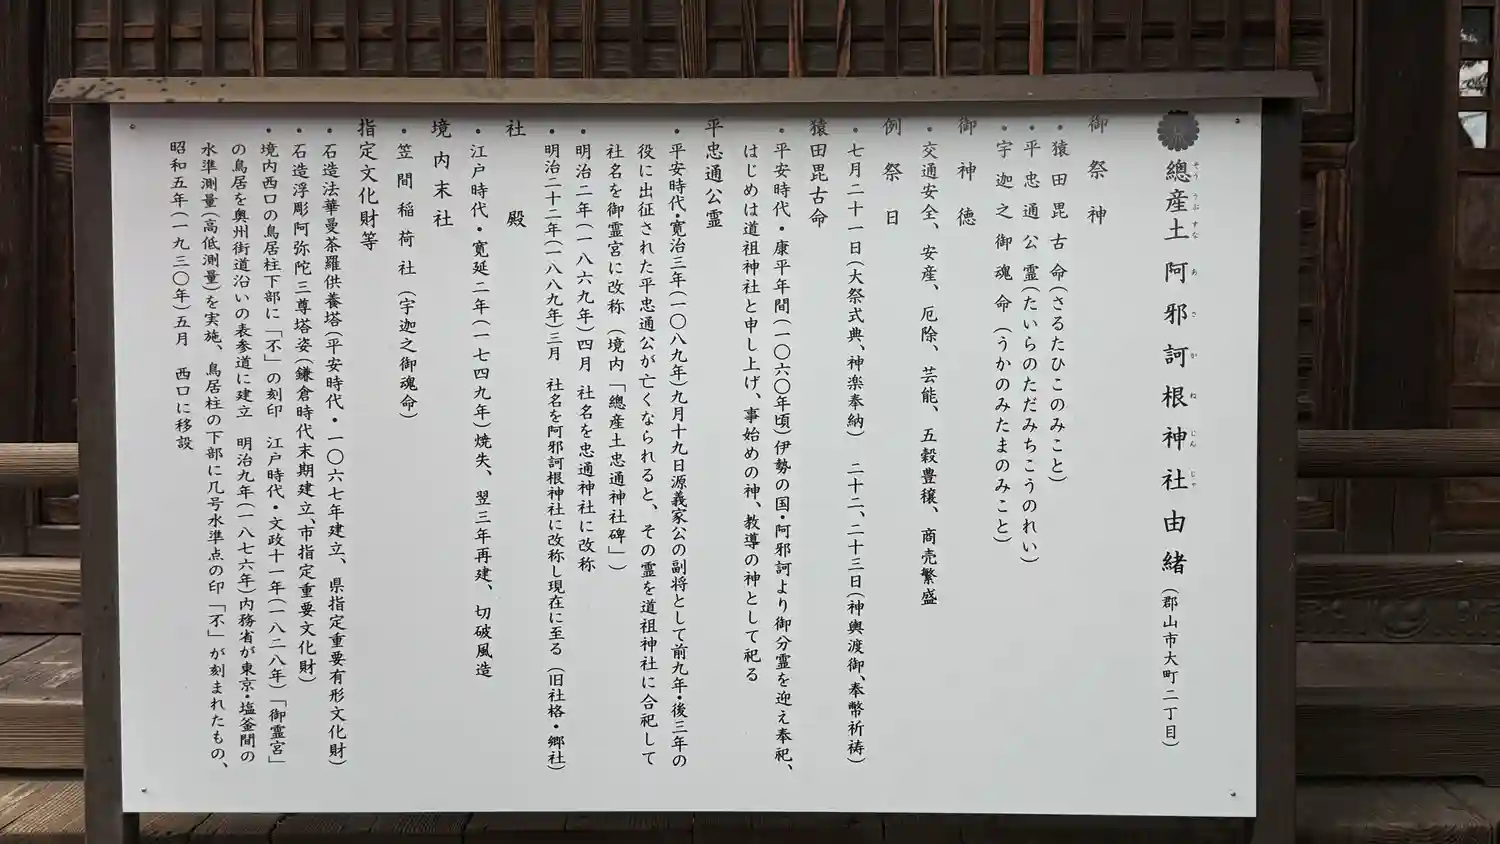 總産土阿邪訶根神社由緒(郡山市大町二丁目)
そう うぶ すな あ さ か ね じん じゃ
御祭神
・猿田毘古命(さるたひこのみこと)
・平忠通公霊(たいらのただみちこうのれい)
・宇迦之御魂命(うかのみたまのみこと)
御神徳
・交通安全、安産、厄除、芸能、五穀豊穣、商売繁盛
例祭日
・七月二十一日(大祭式典、神楽奉納) 二十二、二十三日(神輿渡御、奉幣祈祷)
猿田毘古命
・平安時代・康平年間(一〇六〇年頃)伊勢の国・阿邪訶より御分霊を迎え奉祀、
はじめは道祖神社と申し上げ、事始めの神、教導の神として祀る
平忠通公霊
・平安時代・寛治三年(一〇八九年)九月十九日源義家公の副将として前九年・後三年の
役に出征された平忠通公が亡くなられると、その霊を道祖神社に合祀して
社名を御霊宮に改称(境内「總産土忠通神社碑」)
・明治二年(一八六九年)四月 社名を忠通神社に改称
・明治二十二年(一八八九年)三月 社名を阿邪訶根神社に改称し現在に至る(旧社格・郷社)
社殿
・江戸時代・寛延二年(一七四九年)焼失、翌三年再建、切破風造
境内末社
・笠間稲荷社(宇迦之御魂命)
指定文化財等
・石造法華曼荼羅供養塔(平安時代・一〇六七年建立、県指定重要有形文化財)
・石造浮彫阿弥陀三尊塔姿(鎌倉時代末期建立、市指定重要文化財)
・境内西口の鳥居柱下部に「不」の刻印 江戸時代・文政十一年(一八二八年)「御霊宮」
の鳥居を奥州街道沿いの表参道に建立 明治九年(一八七六年)内務省が東京・塩釜間の
水準測量(高低測量)を実施、鳥居柱の下部に几号水準点の印「不」が刻まれたもの、
昭和五年(一九三〇年)五月 西口に移設